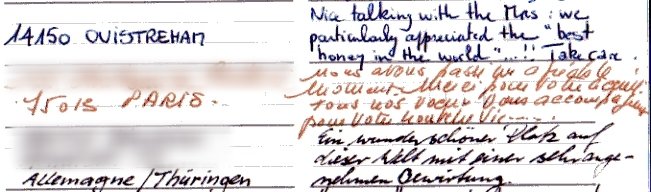 14150 OUISTREHAM
Nice talking with the Mrs : we
particularly appreciated the "best
honey in the world"...!! Take care.
75013 PARIS.
nous avons passé un agréable
moment. Merci pour votre accueil
tous nos voeux vous accompagnent
pour votre nouvelle vie
Allemagne/Thüringen
Ein wunderschöner Platz auf
dieser Welt mit einer sehr ange-
nehmen Bewirtung.